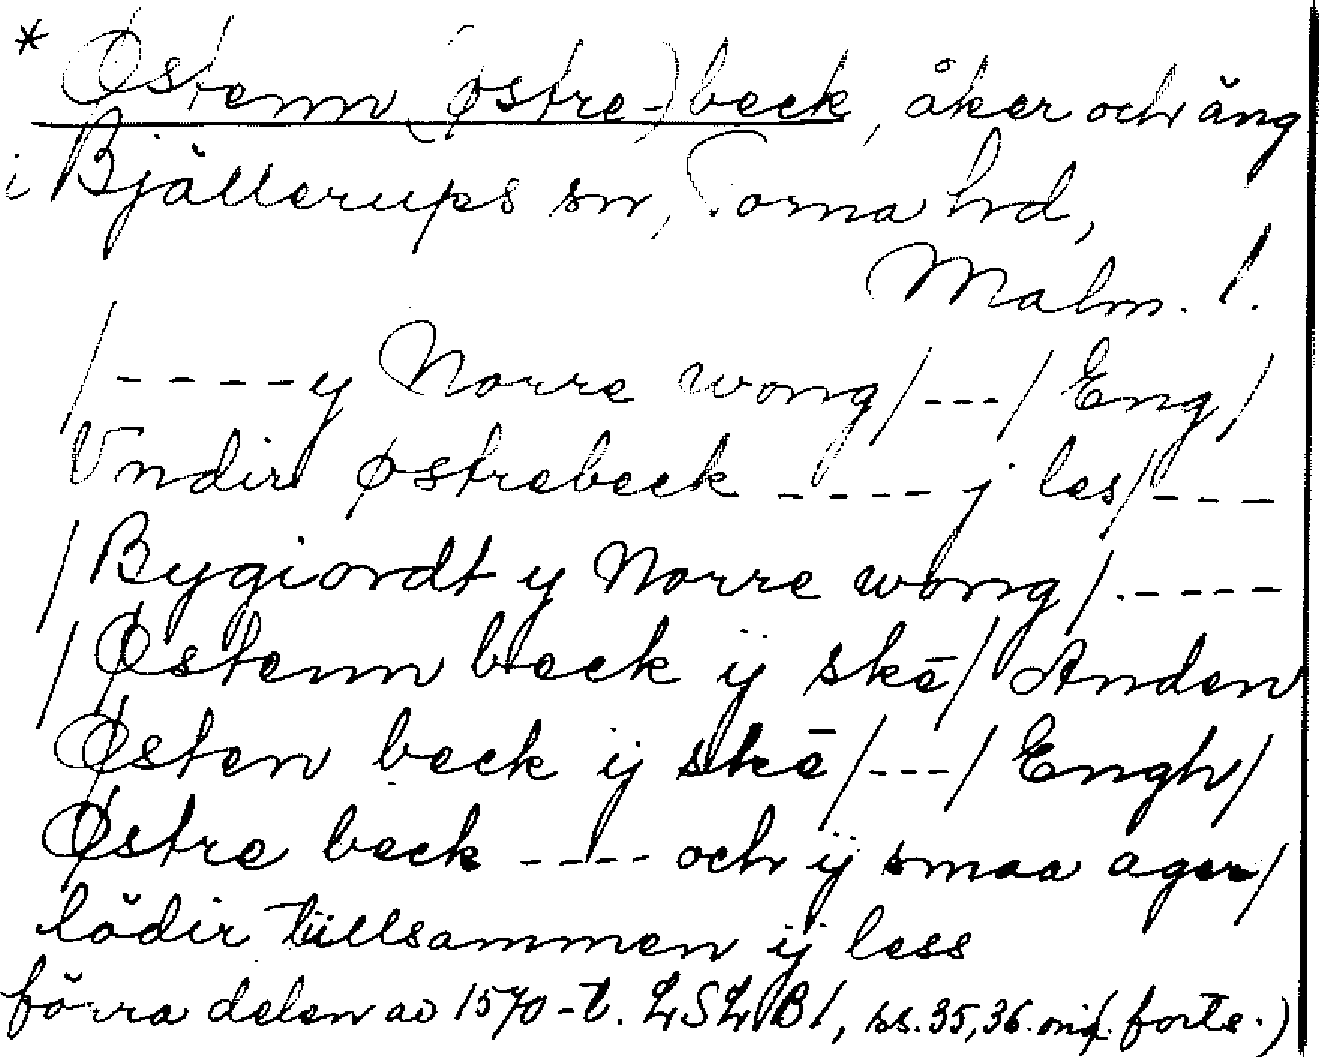 * Østenn (østre-) beck, åker och äng
i Bjällerups sn, Torna hd,
Malm. l.
/----y Norre wong/---/ Eng/
Vndir østrebeck ---- j les/---
/Bygiordt y Norre wong/.----
/Østenn beck ij skē/ Anden
Østen beck ij skē/---/ Engh/
Østre beck ---- och ij smaa ager/
lödir tillsammen ij less
förra delen av 1570-t. LSLB1, ss. 35, 36. forts.)